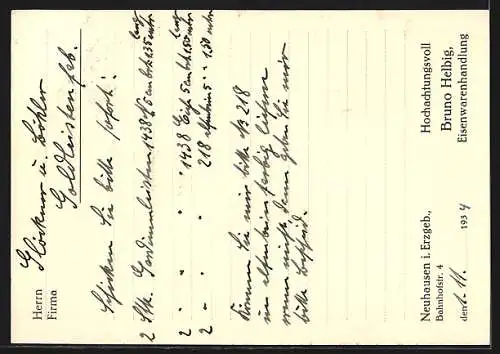 Herrn
Firma
Klöckner u. Böhler
Goldleistenfab.
Schicken Sie bitte sofort:
2 Stk. Gardinenleisten 1438 5 cm br. 1,35 mtr lang
2 " " " 1438 5 cm br. 1,50 mtr lang
2 " " " 218 elfenbein 5 " " 1,30 mtr
Können Sie mir bitte № 218
in elfenbeinfarbig liefern
wenn nicht, dann geben Sie mir
bitte Bescheid.
Neuhausen i. Erzgeb.,
Bahnhofstr. 4
den 1. 11. 1934
Hochachtungsvoll
Bruno Helbig,
Eisenwarenhandlung